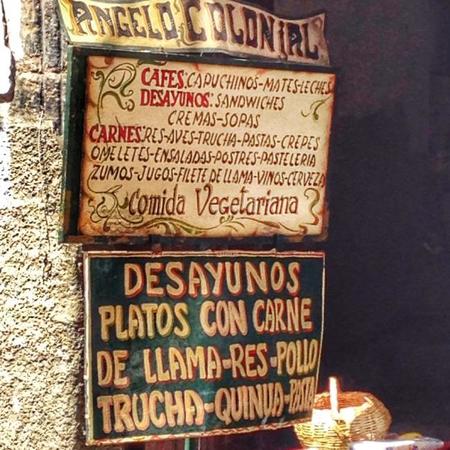 ANGELO COLONIAL
CAFES: CAPUCHINOS-MATES-LECHES
DESAYUNOS: SANDWICHES
CREMAS-SOPAS
CARNES: RES-AVES-TRUCHA-PASTAS-CREPES
OMELETES-ENSALADAS-POSTRES-PASTELERIA
ZUMOS-JUGOS-FILETE DE LLAMA-VINOS-CERVEZA
Comida Vegetariana
DESAYUNOS
PLATOS CON CARNE
DE LLAMA-RES-POLLO
TRUCHA-QUINUA-PASTA